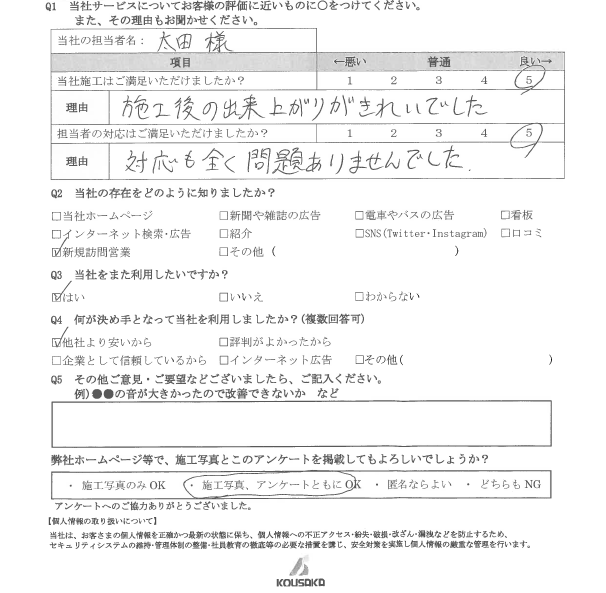 Q1 当社サービスについてお客様の評価に近いものに○をつけてください。
また、その理由もお聞かせください。
当社の担当者名： 太田 様
項目 ←悪い 普通 良い→
当社施工はご満足いただけましたか？ 1 2 3 4 5
理由 施工後の出来上がりがきれいでした
担当者の対応はご満足いただけましたか？ 1 2 3 4 5
理由 対応も全く問題ありませんでした.
Q2 当社の存在をどのように知りましたか？
□当社ホームページ □新聞や雑誌の広告 □電車やバスの広告 □看板
□インターネット検索・広告 □紹介 □SNS(Twitter・Instagram) □口コミ
☑新規訪問営業 □その他（ ）
Q3 当社をまた利用したいですか？
☑はい □いいえ □わからない
Q4 何が決め手となって当社を利用しましたか？(複数回答可)
☑他社より安いから □評判がよかったから
□企業として信頼しているから □インターネット広告 □その他( )
Q5 その他ご意見・ご要望などございましたら、ご記入ください。
例)●●の音が大きかったので改善できないか など
弊社ホームページ等で、施工写真とこのアンケートを掲載してもよろしいでしょうか？
・ 施工写真のみ OK ・ 施工写真、アンケートともに OK ・ 匿名ならよい ・ どちらも NG
アンケートへのご協力ありがとうございました。
【個人情報の取り扱いについて】
当社は、お客さまの個人情報を正確かつ最新の状態に保ち、個人情報への不正アクセス・紛失・破損・改ざん・漏洩などを防止するため、
セキュリティシステムの維持・管理体制の整備・社員教育の徹底等の必要な措置を講じ、安全対策を実施し個人情報の厳重な管理を行います。
KOUSAKA